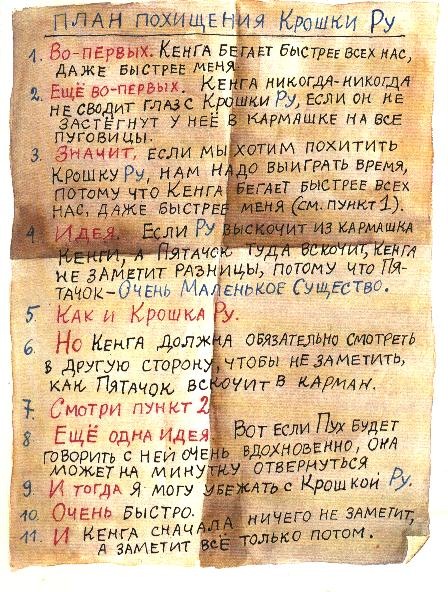 ПЛАН ПОХИЩЕНИЯ КРОШКИ РУ
1. ВО-ПЕРВЫХ. КЕНГА БЕГАЕТ БЫСТРЕЕ ВСЕХ НАС,
ДАЖЕ БЫСТРЕЕ МЕНЯ.
2. ЕЩЁ ВО-ПЕРВЫХ. КЕНГА НИКОГДА-НИКОГДА
НЕ СВОДИТ ГЛАЗ С КРОШКИ РУ, ЕСЛИ ОН НЕ
ЗАСТЁГНУТ У НЕЁ В КАРМАШКЕ НА ВСЕ
ПУГОВИЦЫ.
3. ЗНАЧИТ, ЕСЛИ МЫ ХОТИМ ПОХИТИТЬ
КРОШКУ РУ, НАМ НАДО ВЫИГРАТЬ ВРЕМЯ,
ПОТОМУ ЧТО КЕНГА БЕГАЕТ БЫСТРЕЕ ВСЕХ
НАС, ДАЖЕ БЫСТРЕЕ МЕНЯ (СМ. ПУНКТ 1).
4. ИДЕЯ. ЕСЛИ РУ ВЫСКОЧИТ ИЗ КАРМАШКА
КЕНГИ, А ПЯТАЧОК ТУДА ВСКОЧИТ, КЕНГА
НЕ ЗАМЕТИТ РАЗНИЦЫ, ПОТОМУ ЧТО ПЯ-
ТАЧОК – ОЧЕНЬ МАЛЕНЬКОЕ СУЩЕСТВО.
5. КАК И КРОШКА РУ.
6. НО КЕНГА ДОЛЖНА ОБЯЗАТЕЛЬНО СМОТРЕТЬ
В ДРУГУЮ СТОРОНУ, ЧТОБЫ НЕ ЗАМЕТИТЬ,
КАК ПЯТАЧОК ВСКОЧИТ В КАРМАН.
7. СМОТРИ ПУНКТ 2.
8 ЕЩЁ ОДНА ИДЕЯ. ВОТ ЕСЛИ ПУХ БУДЕТ
ГОВОРИТЬ С НЕЙ ОЧЕНЬ ВДОХНОВЕННО, ОНА
МОЖЕТ НА МИНУТКУ ОТВЕРНУТЬСЯ
9. И ТОГДА Я МОГУ УБЕЖАТЬ С КРОШКОЙ РУ.
10. ОЧЕНЬ БЫСТРО.
11. И КЕНГА СНАЧАЛА НИЧЕГО НЕ ЗАМЕТИТ,
А ЗАМЕТИТ ВСЁ ТОЛЬКО ПОТОМ.